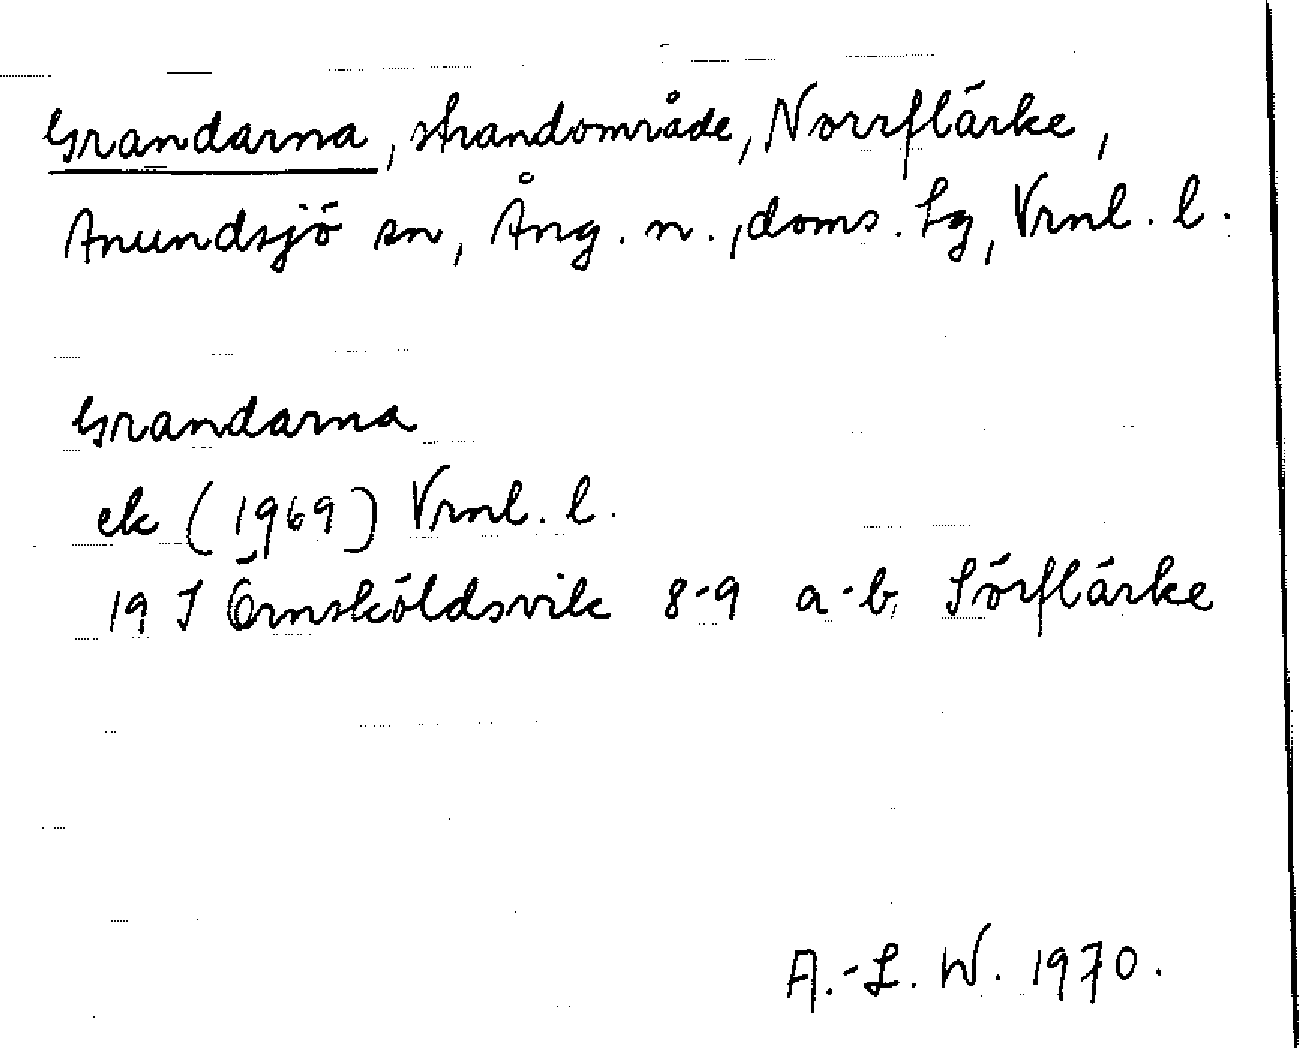 Grandarna, strandområde, Norrflärke,
Anundsjö sn, Ång. n., doms. Lg, Vrnl. l.
Grandarna
ek (1969) Vrnl. l.
19 I Örnsköldsvik 8-9 a-b, Sörflärke
A.-L. W. 1970.